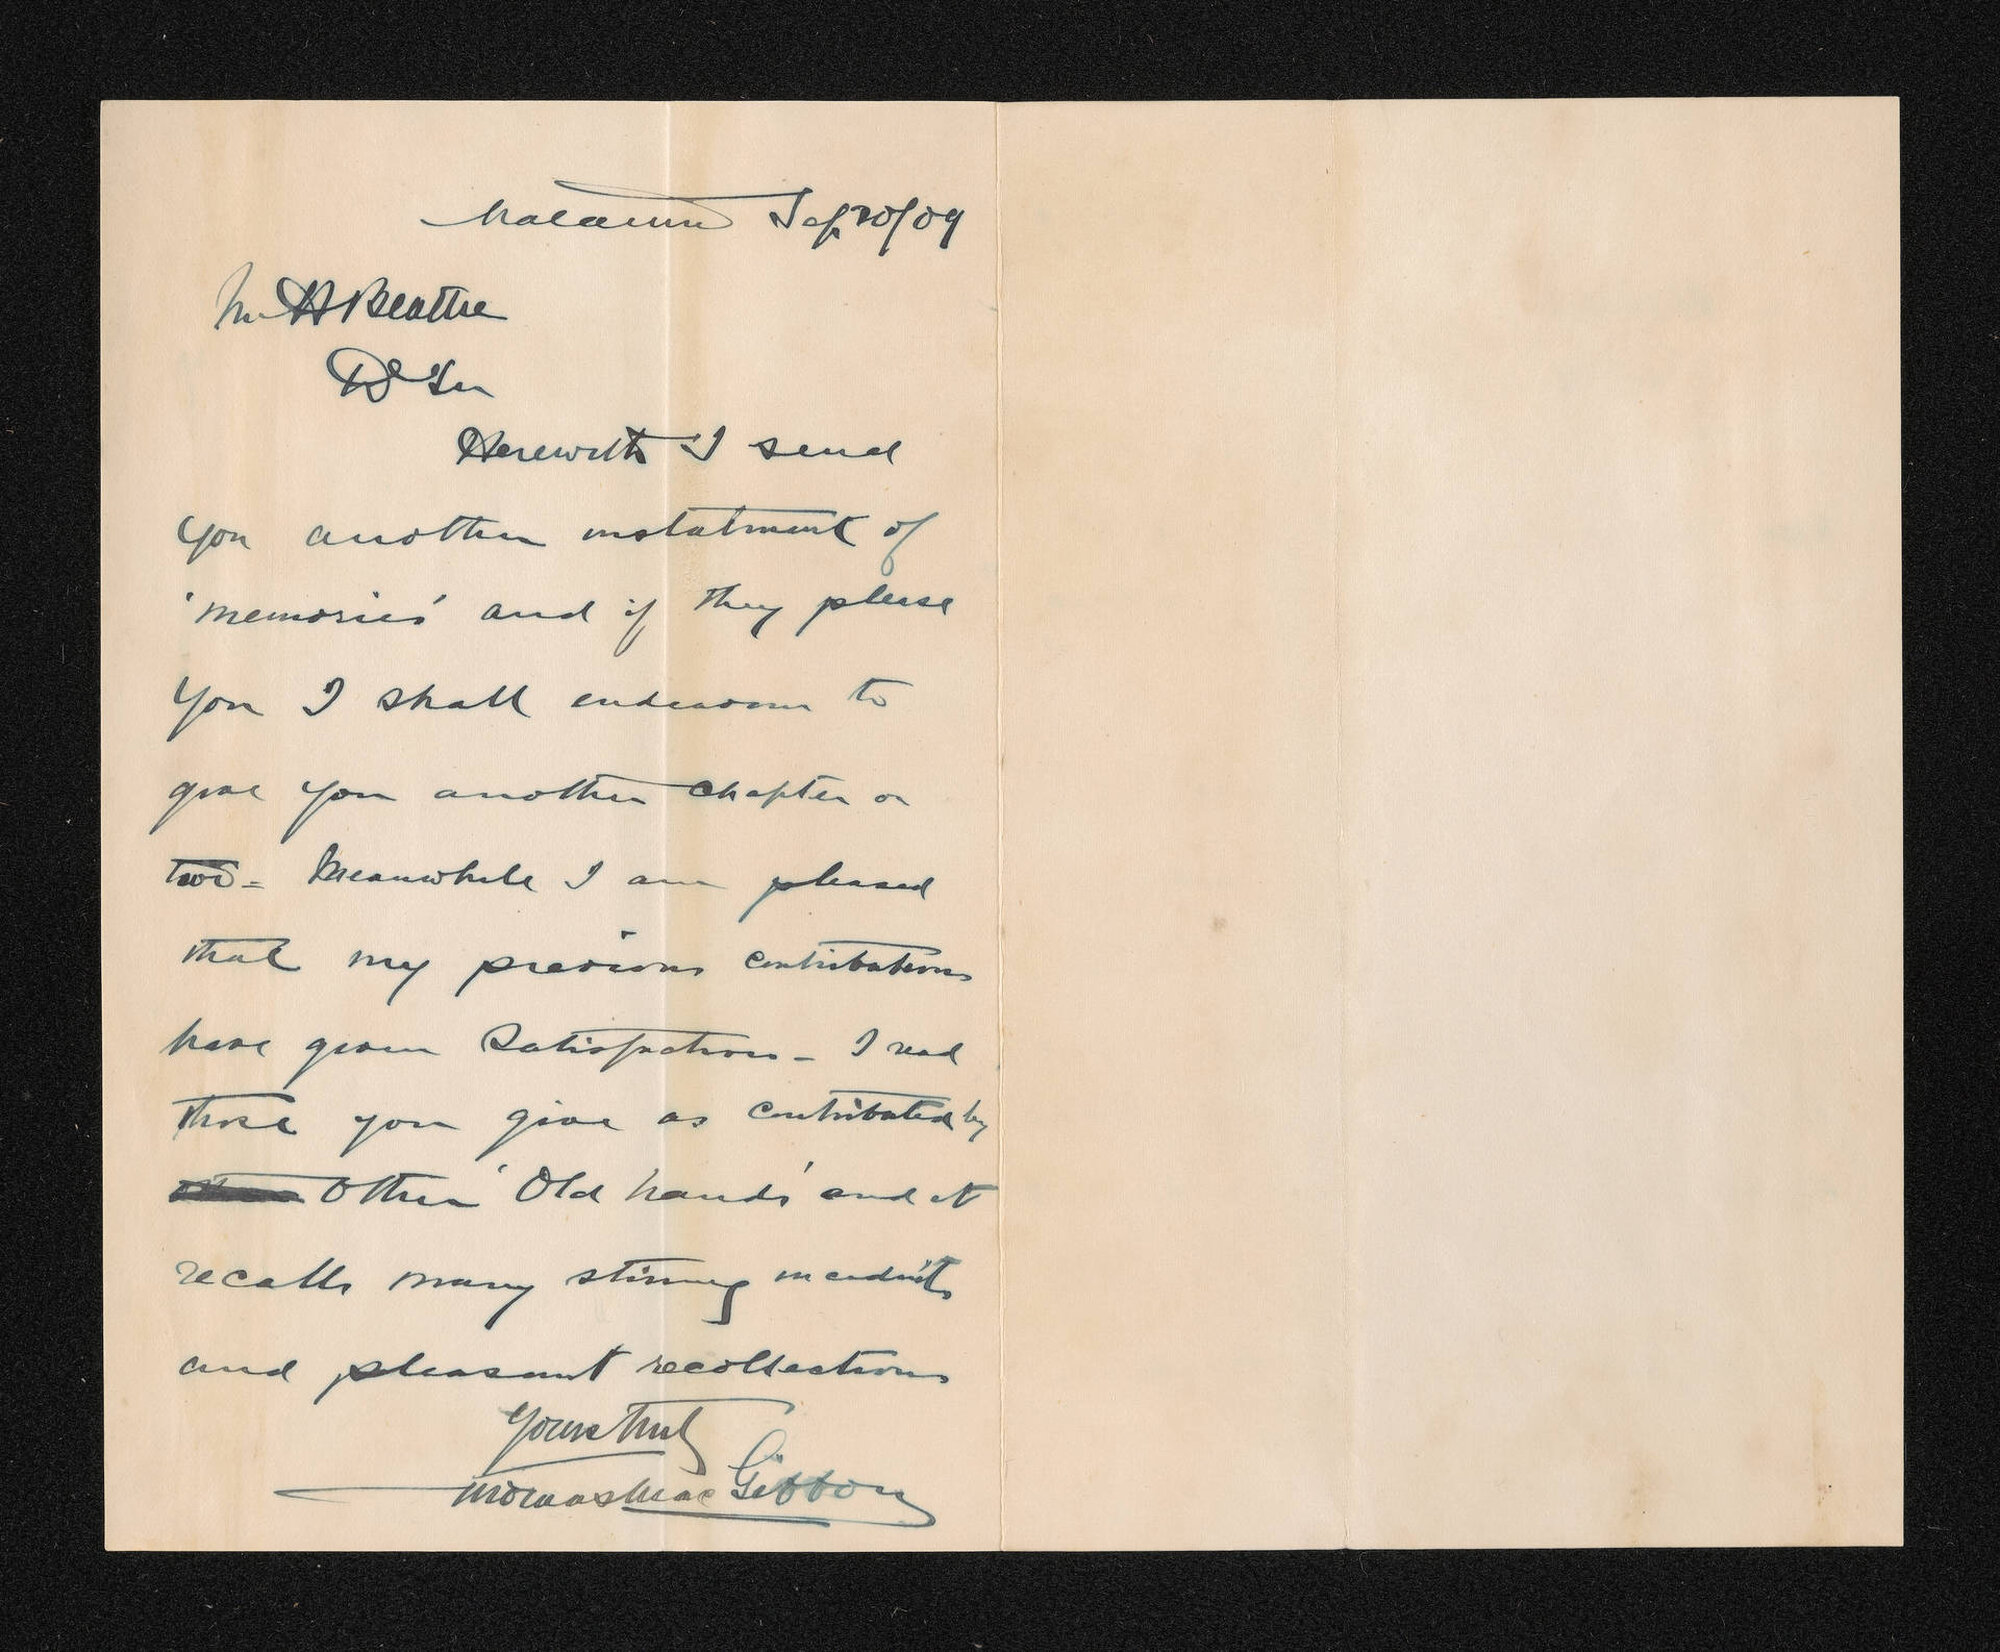 Sep 20/09
Mr H Beattie
Dr Sir
Herewith I send
you another instalment of
'memories' and if they please
you I shall endeavour to
give you another chapter or
two = Meanwhile I am pleased
that my previous contributions
have given satisfaction - I read
those you give as contributed by
Other 'Old hands' and it
recalls many stirring incidents
and pleasant recollections
Yours truly
Thomas MacGibbon